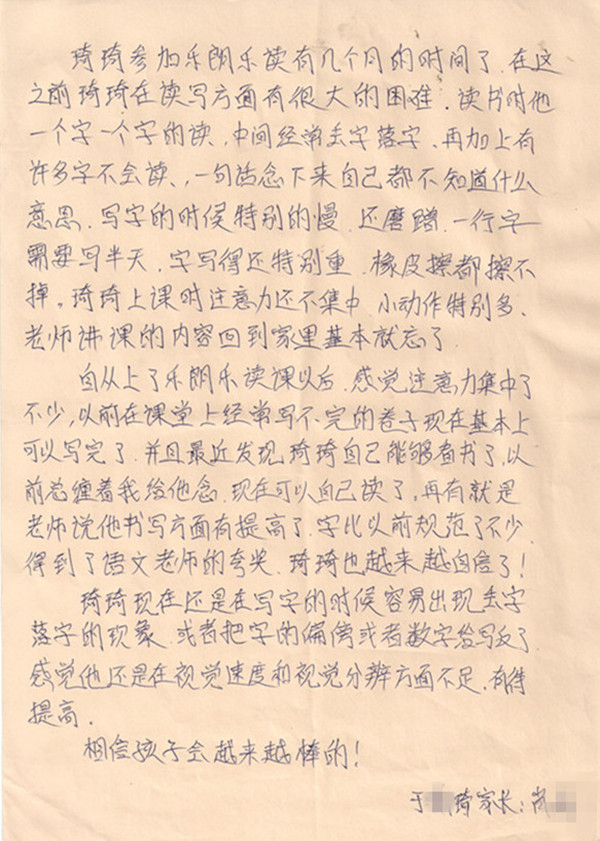 琦琦参加乐朗乐读有几个月的时间了.在这
之前琦琦在读写方面有很大的困难.读书时他
一个字一个字的读、中间经常丢字落字、再加上有
许多字不会读、,一句话念下来自己都不知道什么
意思.写字的时候特别的慢.还磨蹭.一行字
需要写半天,字写得还特别重.橡皮擦都擦不
掉。琦琦上课时注意力还不集中.小动作特别多、
老师讲课的内容回到家里基本就忘了.
自从上了乐朗乐读课以后.感觉注意力集中了
不少,以前在课堂上经常写不完的卷子现在基本上
可以写完了.并且最近发现琦琦自己能够看书了,以
前总缠着我给他念.现在可以自己读了,再有就是
老师说他书写方面有提高了.字比以前规范了不少.
得到了语文老师的夸奖.琦琦也越来越自信了!
琦琦现在还是在写字的时候容易出现丢字
落字的现象.或者把字的偏傍或者数字给写反了
感觉他还是在视觉速度和视觉分辨方面不足.有待
提高.
相信孩子会越来越棒的!
于 琦家长:尚